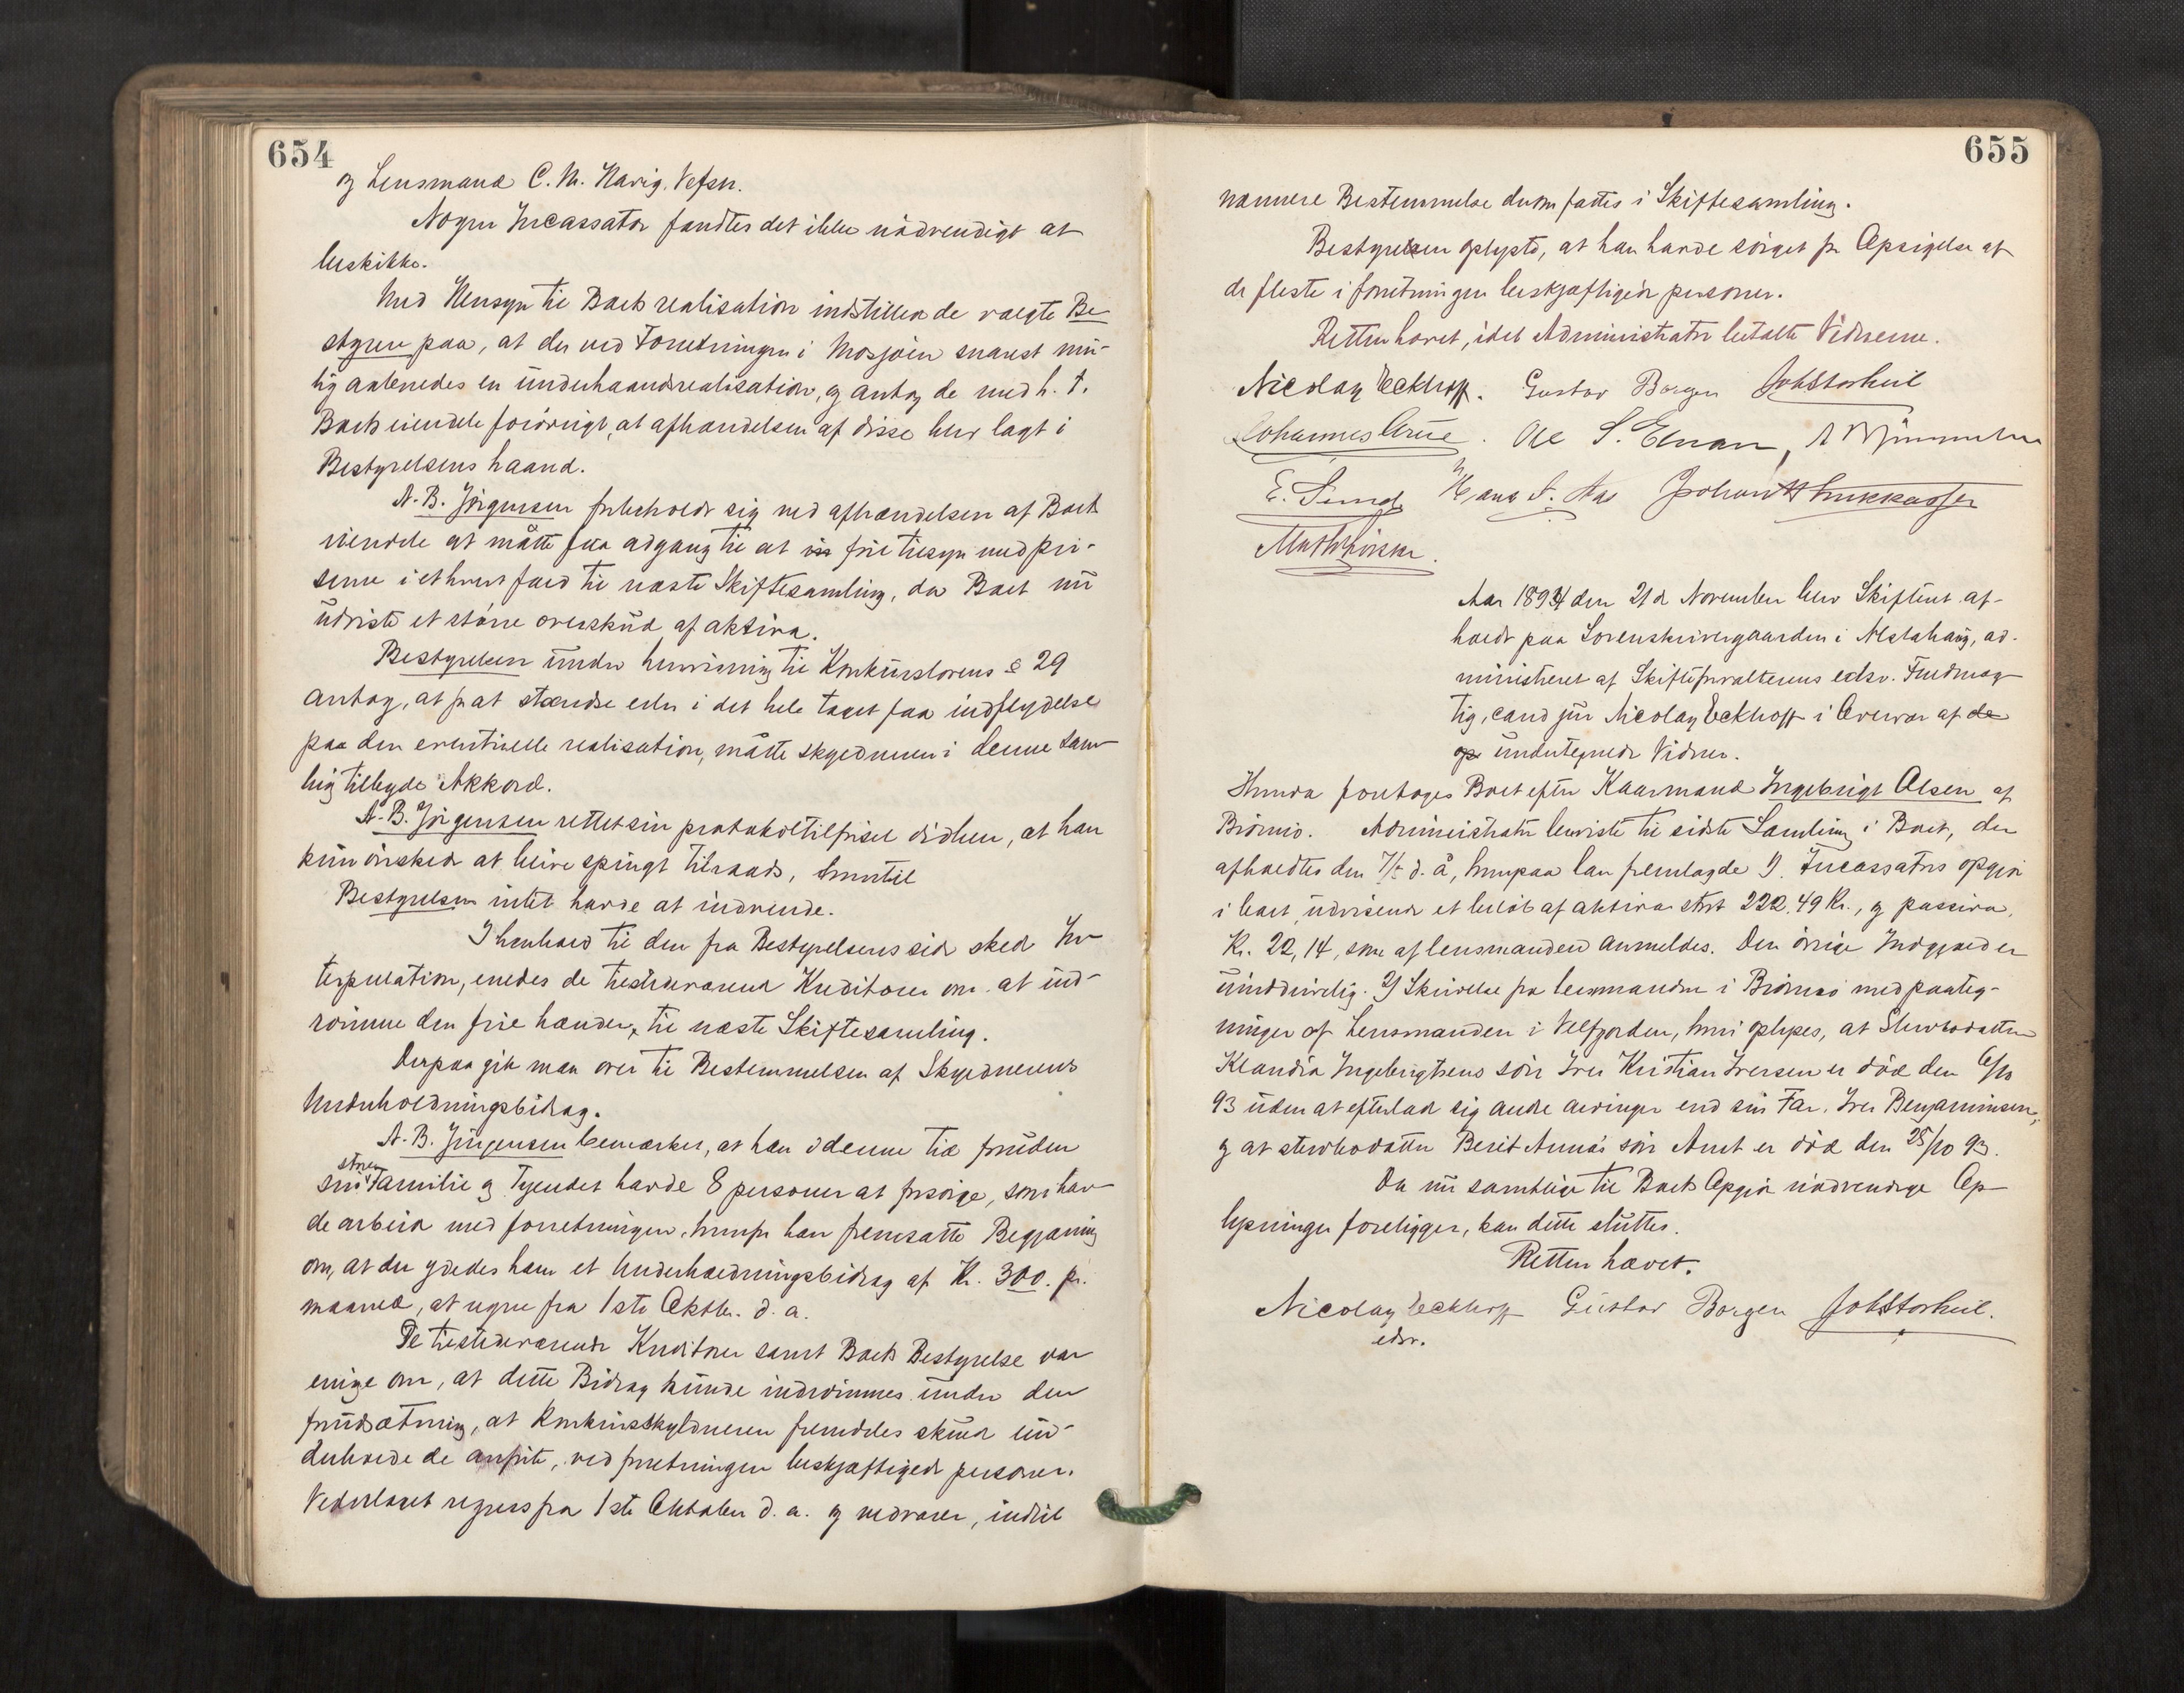 654
og Lensmand C. M. Havig, Vefsn.
Nogen Incassator fandtes det ikke nödvendigt at
beskikke.
Med Hensyn til Boets realisation indstillede de valgte Be-
styrere paa, at der ved Forretningen i Mosjöen snarest mu-
lig aabnedes en underhaandsrealisation, og antog de med h. t.
Boets eiendele forövrigt, at afhændelsen af disse blev lagt i
Bestyrelsens haand.
A. B. Jörgensen forbeholdt sig ved afhændelsen af Boets
eiendele at måtte faa adgang til at före tilsyn med pri-
serne i ethvert fald til næste Skiftesamling, da Boet nu
udviste et större overskud af aktiva.
Bestyrelsen under henvisning til Konkurslovens § 29
antog, at for at standse eller i det hele taget faa indflydelse
paa den eventuelle realisation, måtte skyldneren i denne Sam-
ling tilbyde Akkord.
A. B. Jörgensen rettet sin protokoltilförsel didhen, at han
kun önsked at blive spurgt tilraads, hvortil
Bestyrelsen intet havde at indvende.
I henhold til den fra Bestyrelsens side sked In-
terpellation, enedes de tilstedeværende Kreditorer om at ind-
römme den frie hænder til næste Skiftesamling.
Derpaa gik man over til Bestemmelsen af Skyldnerens
Underholdningsbidrag.
A. B. Jörgensen bemærker, at han i denne tid foruden
store
sin Familie og Tyendet havde 8 personer at forsörge, som hav-
de arbeide med forretningen, hvorfor han fremsatte Begjæring
om, at der ydedes ham et Underholdningsbidrag af Kr. 300. pr.
maaned, at regne fra 1ste Oktbr. d. a.
De tilstedeværende Kreditorer samt Boets Bestyrelse var
enige om, at dette Bidrag kunde indrömmes under den
forudsætning, at Konkursskyldneren fremdeles skulde un-
derholde de anförte, ved forretningen beskjæftigede personer.
Vederlaget regnes fra 1ste Oktober d. a. og vedvarer, indtil
655
nærmere Bestemmelse derom fattes i Skiftesamling.
Bestyrelsen oplyste, at han havde sörget for Opsigelse af
de fleste i forretningen beskjæftigede personer.
Retten hævet, idet Administrator betalte Vidnerne.
Nicolay Eckhoff. Gustav Borgen Joh Storheil
Johannes . Ole S.
E. Sund Hans Johan
Aar 1894 den 21de November blev Skifteret af-
holdt paa Sorenskrivergaarden i Alstahaug, ad-
ministreret af Skifteforvalterens edsv. Fuldmæg-
tig, cand jur Nicolay Eckhoff i Overvær af de
op undertegnede Vidner.
Hvorda foretoges Boet efter Kaarmand Ingebrigt Olsen af
Brönnö. Administrator henviste til sidste Samling i Boet, der
afholdtes den 7/5 d. å, hvorpaa han fremlagde I. Incassators opgjör
i boet, udvisende et belöb af aktiva stort 222.49 Kr., og passiva,
Kr. 22,14, som af lensmanden anmeldes. Den övrige Indgjæld er
uinddrivelig. II Skrivelse fra lensmanden i Brönnö med paateg-
ninger af Lensmanden i Velfjorden, hvori oplyses, at Stervbodatteren
Klaudia Ingebrigtsens sön Iver Kristian Iversen er död den 6/10
93 uden at efterlade sig andre arvinger end sin Far. Iver Benjaminsen,
og at stervbodatter Berit Annas sön Arnt er död den 25/10 93.
Da nu samtlige til Boets Opgjör nödvendige Op-
lysninger foreligger, kan dette sluttes.
Retten hævet.
Nicolay Eckhoff Gustav Borgen Joh Storheil.
edsv.